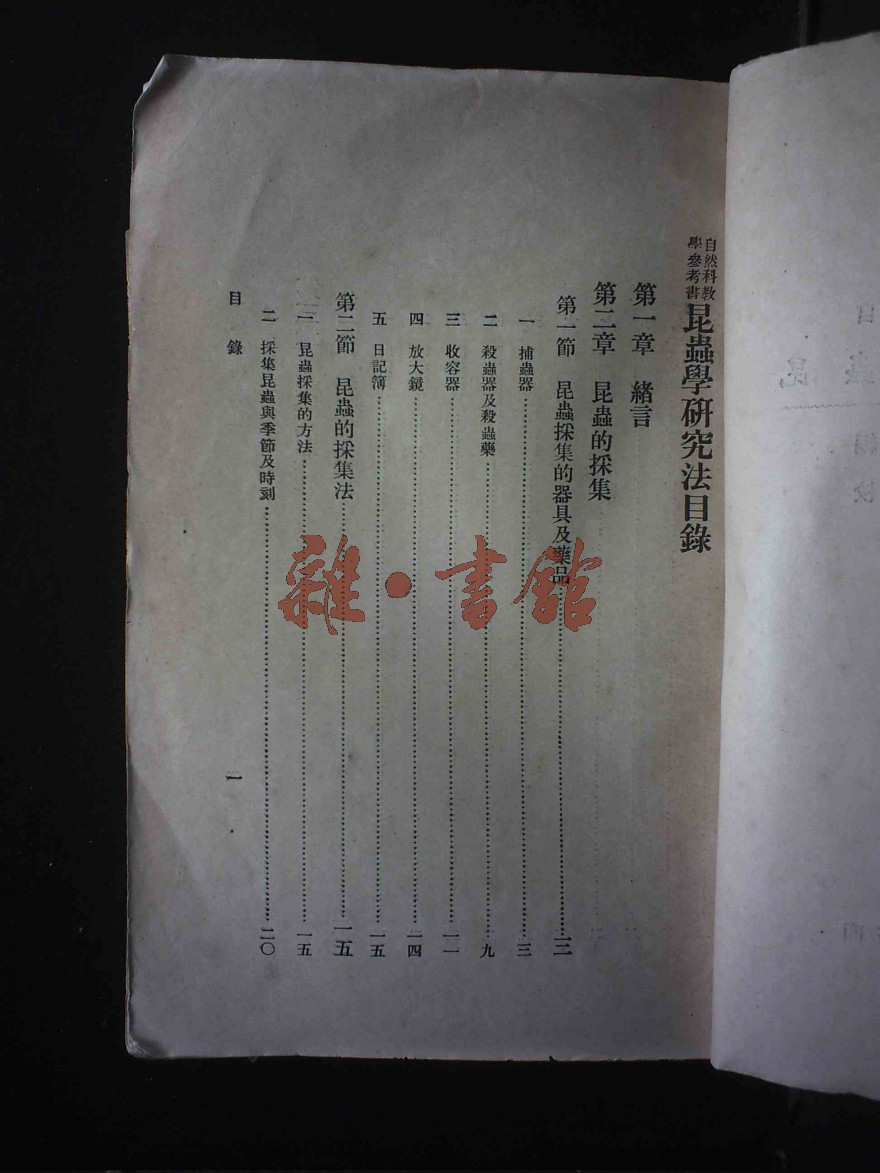 自然科教學參考書 昆蟲學研究法目錄
第一章 緒言
第二章 昆蟲的採集
第一節 昆蟲採集的器具及藥品…………三
一 捕蟲器…………三
二 殺蟲器及殺蟲藥…………九
三 收容器…………一一
四 放大鏡…………一四
五 日記簿…………一五
第二節 昆蟲的採集法…………一五
一 昆蟲採集的方法…………一五
二 採集昆蟲與季節及時刻…………二〇
目錄 一
雜·書館